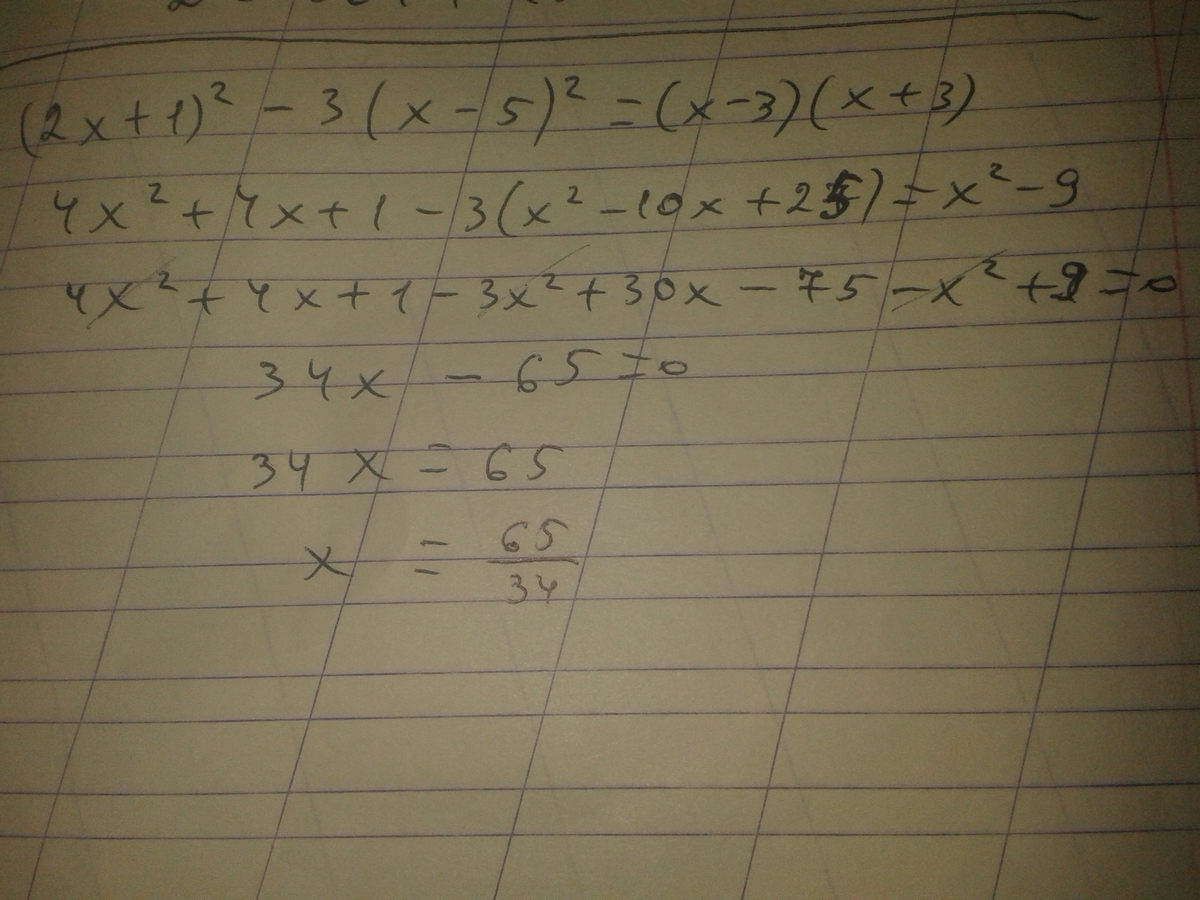 (2x+1)² - 3(x-5)² = (x-3)(x+3)
4x² + 4x + 1 - 3(x² - 10x + 25) = x² - 9
4x² + 4x + 1 - 3x² + 30x - 75 - x² + 9 = 0
34x - 65 = 0
34x = 65
x = 65/34